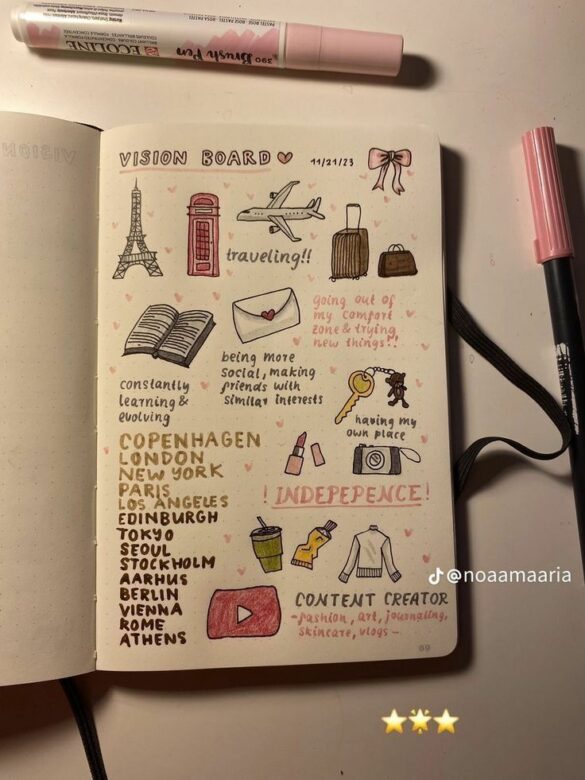 PASTEL ROSE
390 Brush Pen
ECOLINE
VISION BOARD
11/21/23
traveling!!
going out of
my comfort
zone & trying
new things!!
being more
social, making
friends with
similar interests
constantly
learning &
evolving
having my
own place
COPENHAGEN
LONDON
NEW YORK
PARIS
LOS ANGELES
EDINBURGH
TOKYO
SEOUL
STOCKHOLM
AARHUS
BERLIN
VIENNA
ROME
ATHENS
! INDEPEPENCE !
CONTENT CREATOR
-fashion, art, journaling,
skincare, vlogs-
@noaamaaria
69